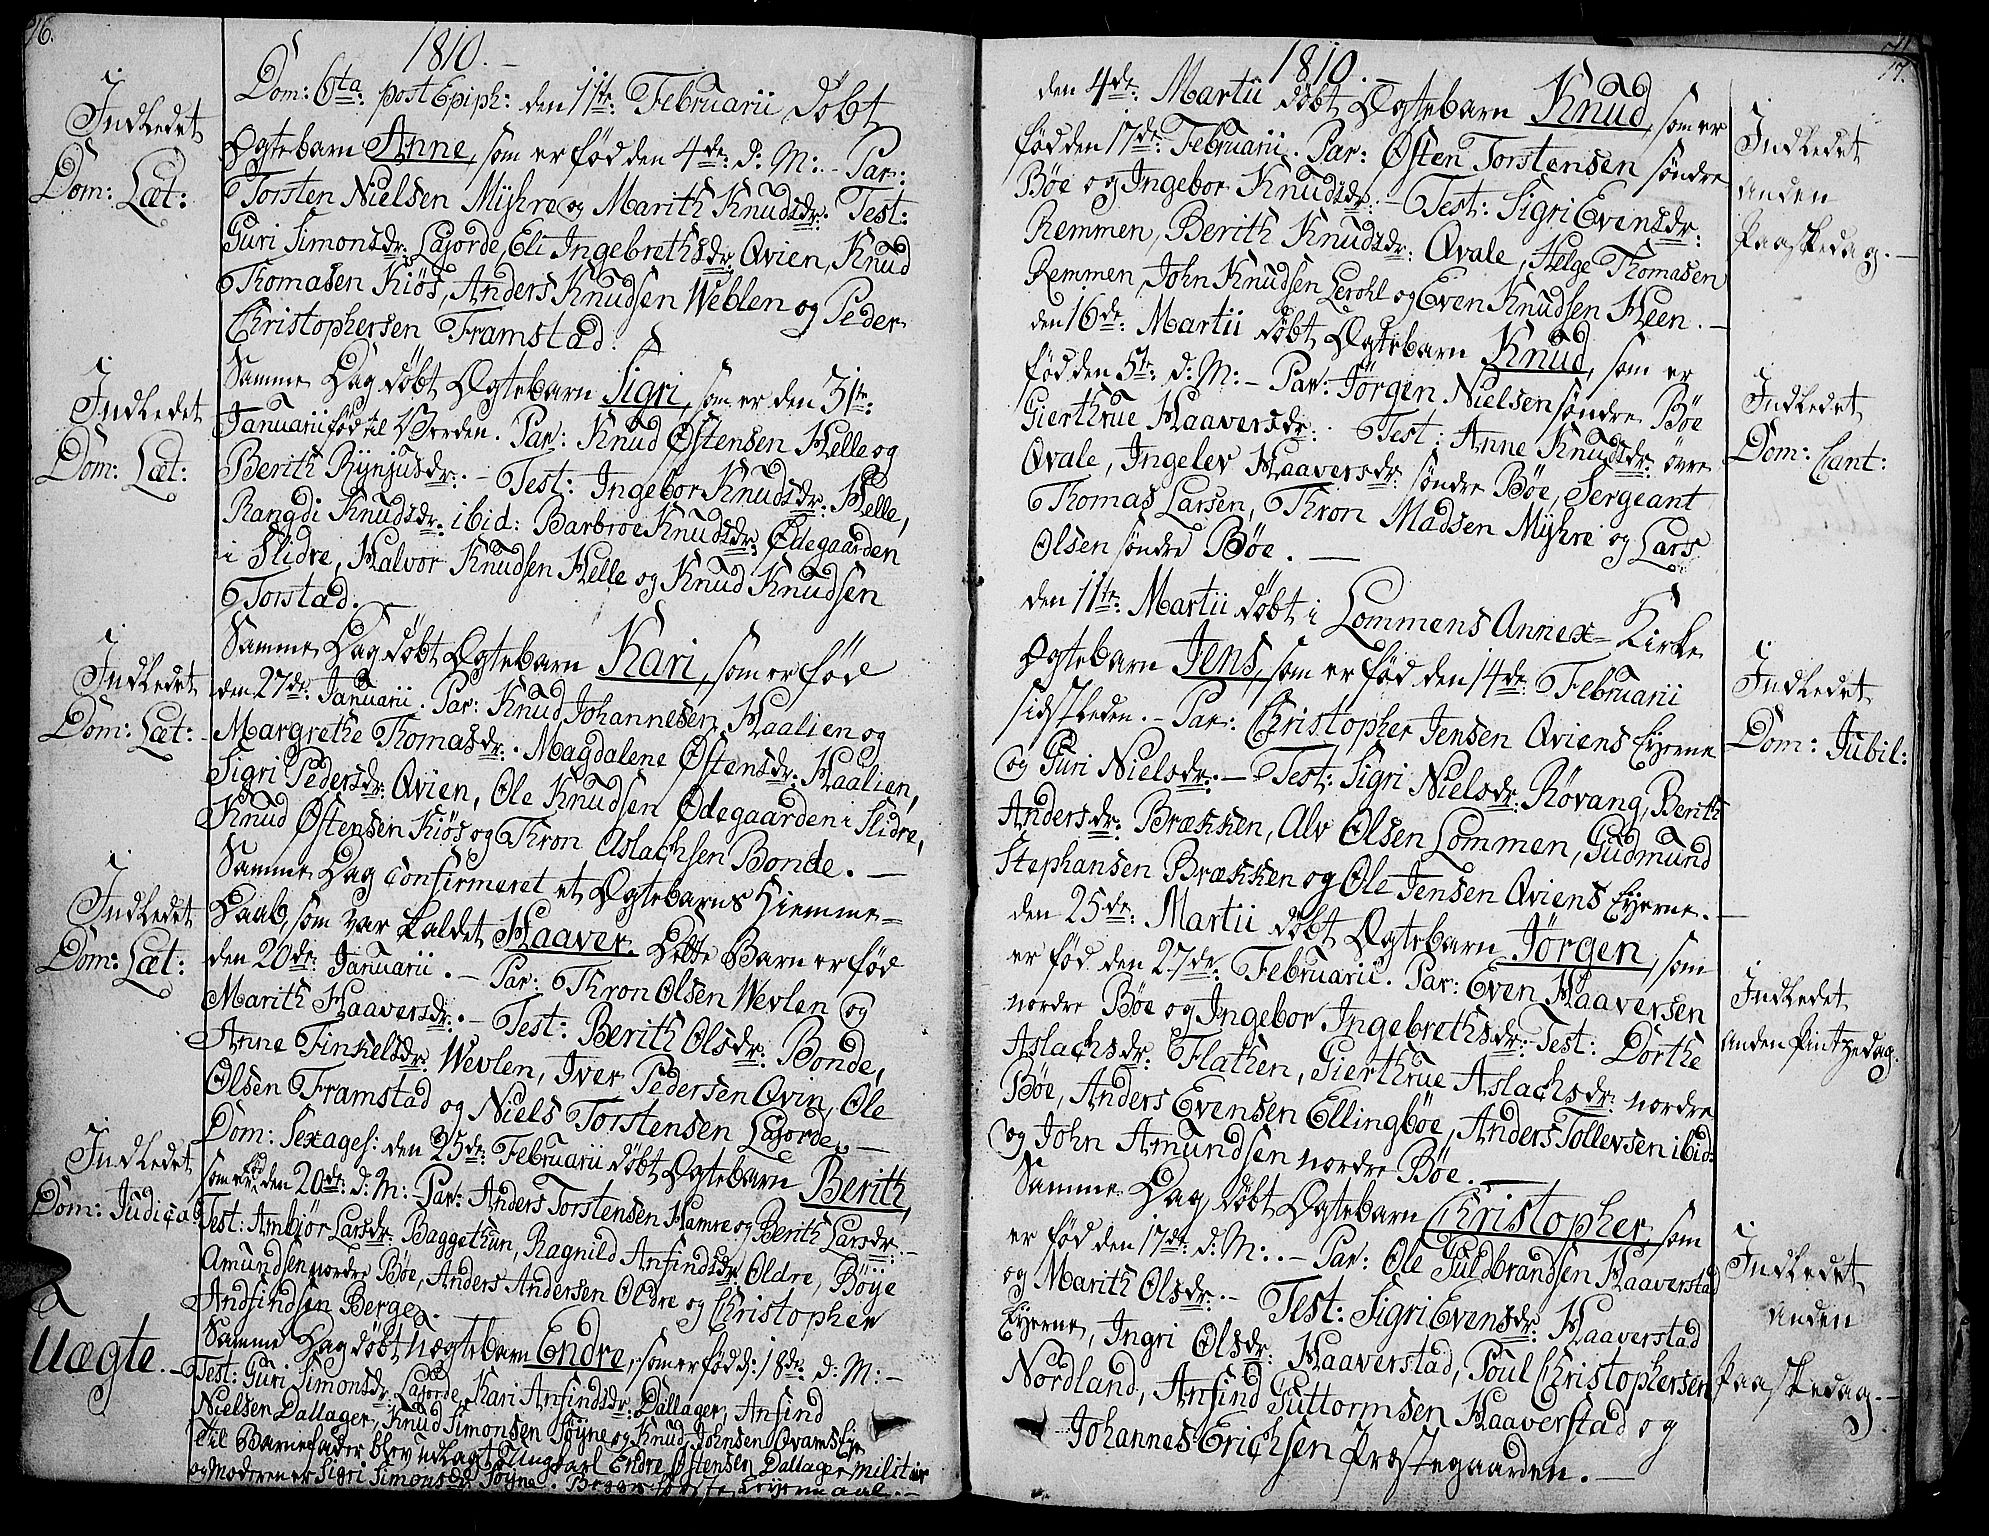 76.
1810. –
Indledet
Dom: Læt:
Dom: 6ta: post Epiph: den 11te: Februarii døbt
Ægtebarn Anne, som er fød den 4de: d: M: – Par:
Torsten Nielsen Myhre og Marith Knudsdr: Test:
Guri Simonsdr: Lajorde, Eli Ingebrethsdr: Qvien, Knud
Thomasen Kiøs, Anders Knudsen Weblen og Peder
Christophersen Framstad.
Indledet
Dom: Læt:
Samme Dag døbt Ægtebarn Sigri, som er den 31te:
Januarii fød til Verden. Par: Knud Østensen Helle og
Berith Rynjusdr: – Test: Ingebor Knudsdr: Helle,
Rangdi Knudsdr: ibid: Barbroe Knudsdr: Ødegaarden
i Slidre, Halvor Knudsen Helle og Knud Knudsen
Torstad.
Indledet
Dom: Læt:
Samme Dag døbt Ægtebarn Kari, som er fød
den 27de: Januarii. Par: Knud Johannesen Haalien og
Margrethe Thomasdr: Magdalene Østensdr: Haalien,
Sigri Pedersdr: Qvien, Ole Knudsen Ødegaarden i Slidre,
Knud Østensen Kiøs og Thron Aslachsen Bonde. –
Indledet
Dom: Læt:
Samme Dag confirmeret et Ægtebarns Hiemme-
Daab, som var kaldet Haaver. Dette Barn er fød
den 20de: Januarii. – Par: Thron Olsen Wevlen og
Marith Haaversdr: – Test: Berith Olsdr: Bonde,
Anne Finkelsdr: Wevlen, Iver Pedersen Qvin, Ole
Olsen Framstad og Niels Torstensen Lajorde. –
Indledet
Dom: Judica
Dom: Sexages: den 25de: Februarii døbt Ægtebarn Berith,
som er fød den 20de: d: M: – Par: Anders Torstensen Hamre og Berith Larsdr: –
Test: Ambjør Larsdr: Baggethun, Ragnild Anfindsdr: Oldre, Bøye
Amundsen nordre Bøe, Anders Andersen Oldre og Christopher
Andfindsen Berge.
Uægte. –
Samme Dag døbt Uægtebarn Endre, som er fød d: 18de: d: M: –
Test: Guri Simonsdr: Lajorde, Kari Anfindsdr: Dallager, Anfind
Nielsen Dallager, Knud Simonsen Søyne og Knud Johnsen Qvamslye
Til Barnefader blev udlagt Ungkarl Endre Østensen Dallager militær
og Moderen er Sigri Simonsdr: Søyne. Leiermaal. –
77.
1810. –
Indledet
anden
Paaskedag. –
den 4de: Martii døbt Ægtebarn Knud, som er
fød den 17de: Februarii. Par: Østen Torstensen søndre
Bøe og Ingebor Knudsdr: – Test: Sigri Evensdr:
Remmen, Berith Knudsdr: Qvale, Helge Thomasen
Remmen, John Knudsen Lerohl og Even Knudsen Heen. –
Indledet
Dom: Cant:
den 16de: Martii døbt Ægtebarn Knud, som er
fød den 5te: d: M: – Par: Jørgen Nielsen søndre Bøe
Gierthrue Haaversdr: Test: Anne Knudsdr: øvre
Qvale, Ingelev Haaversdr: søndre Bøe, Sergeant
Thomas Larsen, Thron Madsen Myhre og Lars
Olsen søndre Bøe. –
Indledet
Dom: Jubil:
den 11te: Martii døbt i Lommens Annex-Kirke
Ægtebarn Jens, som er fød den 14de: Februarii
sidstleden. – Par: Christopher Jensen Qviens Eyerne
og Guri Nielsdr: – Test: Sigri Nielsdr: Røvang, Berith
Andersdr: Brækken, Alv Olsen Lommen, Gudmund
Stephansen Brækken og Ole Jensen Qviens Eyerne. –
Indledet
anden Pintzedag.
den 25de: Martii døbt Ægtebarn Jørgen, som
er fød den 27de: Februarii. Par: Even Haaversen
nordre Bøe og Ingebor Ingebrethsdr: – Test: Dorthe
Aslachsdr: Flathen, Gierthrue Aslachsdr: nordre
Bøe, Anders Evensen Ellingbøe, Anders Tollevsen ibid:
og John Amundsen nordre Bøe. –
Indledet
anden
Paaskedag. –
Samme Dag døbt Ægtebarn Christopher, som
er fød den 17de: d: M: – Par: Ole Guldbrandsen Haaverstad
og Marith Olsdr: – Test: Sigri Evensdr: Haaverstad
Eyerne, Ingri Olsdr: Haaverstad, Poul Christophersen
Nordland, Anfind Guttormsen Haaverstad og
Johannes Erichsen Præstegaarden. –